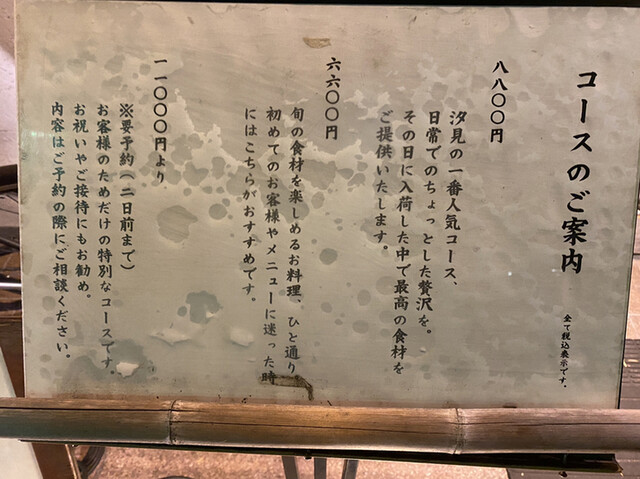 コースのご案内
全て税込表示です。
八八〇〇円
汐見の一番人気コース、
日常でのちょっとした贅沢を。
その日に入荷した中で最高の食材を
ご提供いたします。
六六〇〇円
旬の食材を楽しめるお料理、ひと通り
初めてのお客様やメニューに迷った時
にはこちらがおすすめです。
一一〇〇〇円より
※要予約（二日前まで）
お客様のためだけの特別なコースです。
お祝いやご接待にもお勧め。
内容はご予約の際にご相談ください。